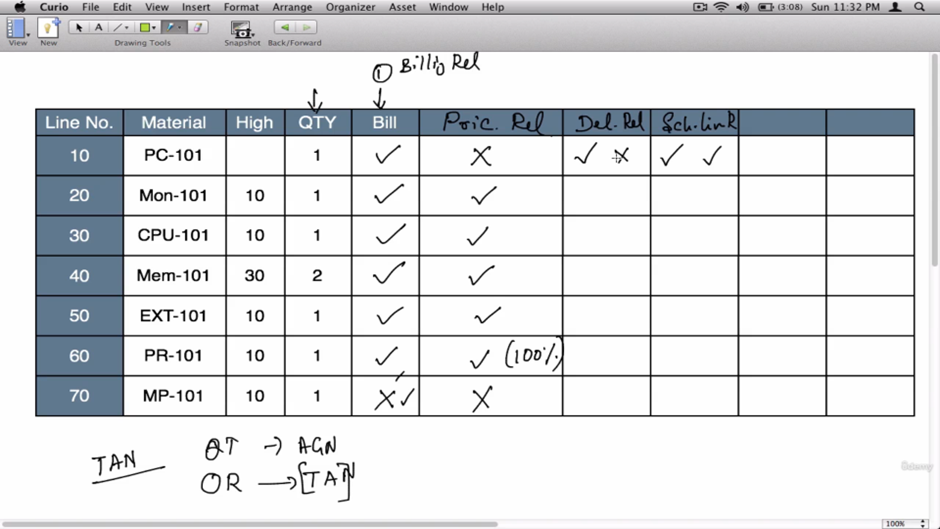 Curio File Edit View Insert Format Arrange Organizer Asset Window Help (3:08) Sun 11:32 PM
View New Drawing Tools Snapshot Back/Forward
① Billig Rel
Line No. Material High QTY Bill Pric. Rel Del. Rel Sch. Link
10 PC-101 1 ✓ X ✓ X ✓ ✓
20 Mon-101 10 1 ✓ ✓
30 CPU-101 10 1 ✓ ✓
40 Mem-101 30 2 ✓ ✓
50 EXT-101 10 1 ✓ ✓
60 PR-101 10 1 ✓ ✓ (100%)
70 MP-101 10 1 X ✓ X
TAN QT → AGN
OR → [TAN]
Udemy
100%